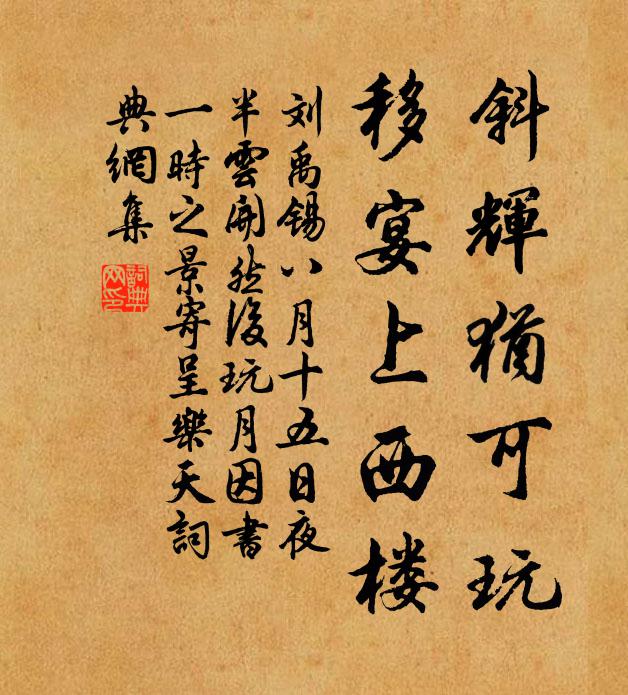 斜輝猶可玩
移宴上西楼
刘禹锡八月十五日夜
半雲開然後玩月因書
一時之景寄呈樂天詞
典網集
詞典網印